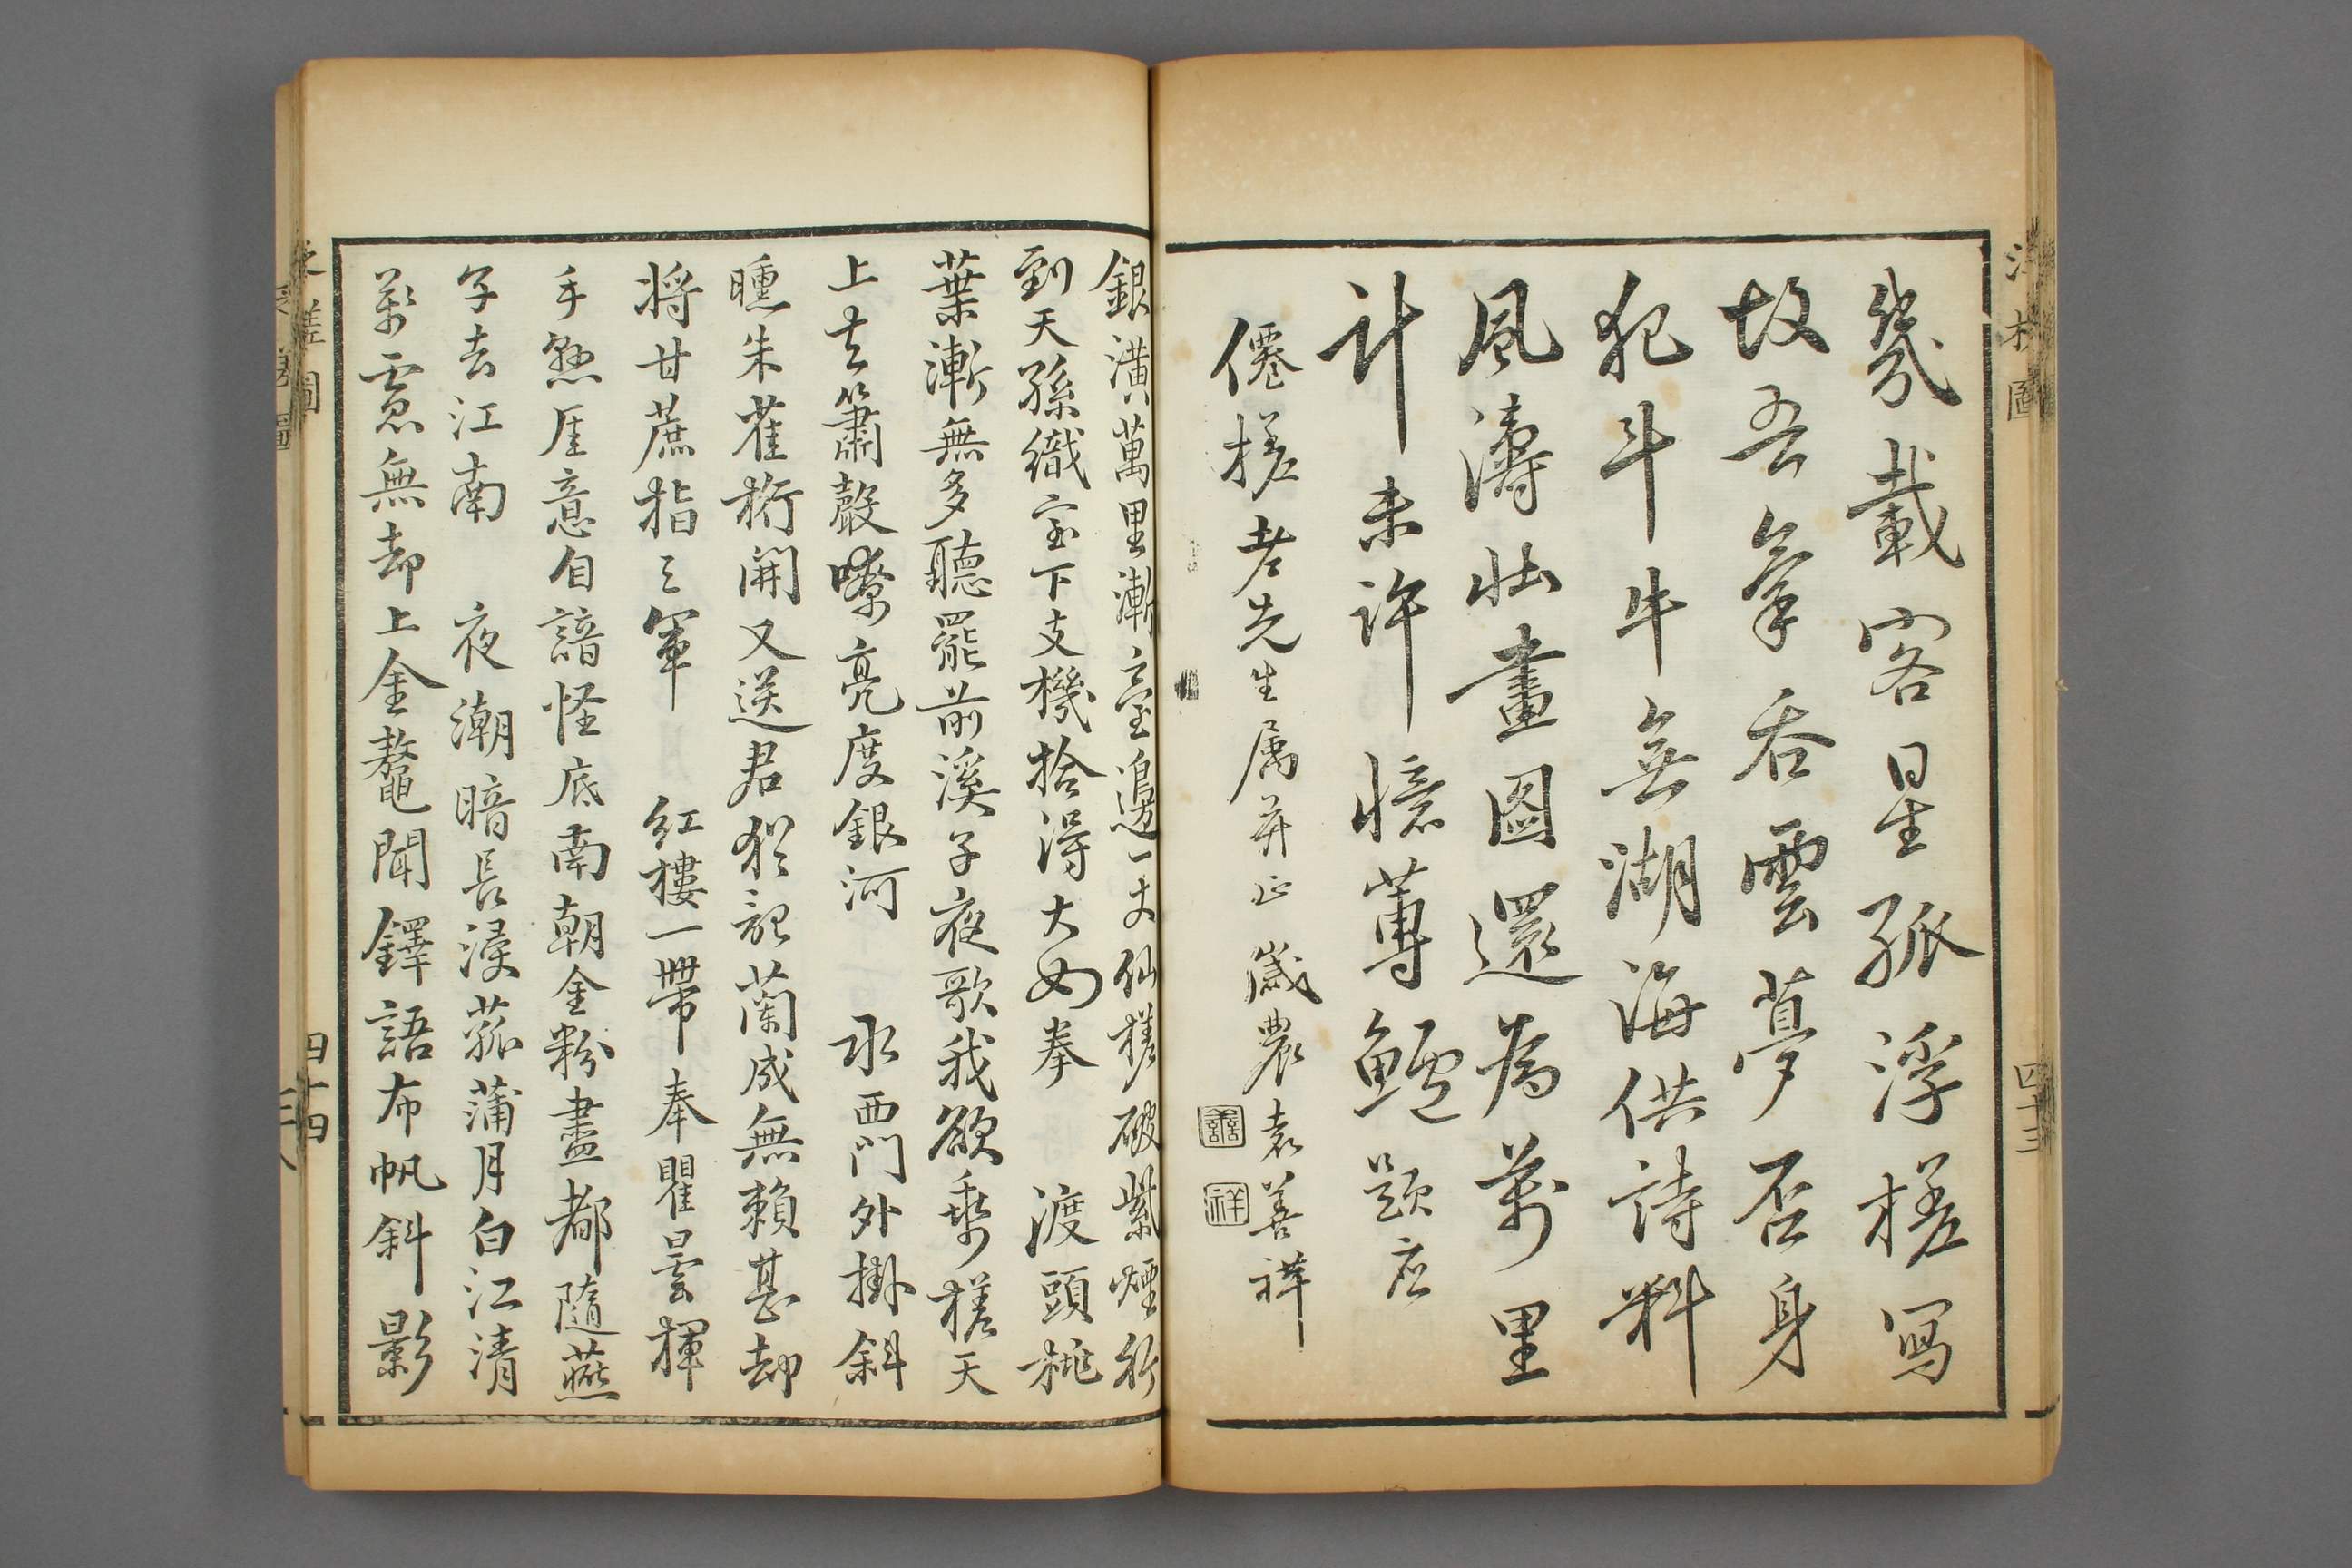 幾載客星孤浮槎寫
故吾氣吞雲夢否身
犯斗牛無湖海供詩料
風濤壯畫圖還為萬里
計未許憶蓴鱸 題應
僊槎老先生属并正 歲農袁善祥
善
祥
四十三
銀潢萬里漸臺邊一丈仙槎破紫煙行
到天孫織室下支機拾得大如拳 渡頭桃
葉漸無多聽罷前溪子夜歌我欲乘槎天
上去簫聲嘹亮度銀河 水西門外掛斜
曛朱雀桁開又送君猶記蘭成無賴甚却
將甘蔗指三軍 紅樓一帶奉瞿曇揮
手懸厓意自諳怪底南朝金粉盡都隨燕
子去江南 夜潮暗長浸菰蒲月白江清
萬慮無却上金鼇聞鐸語布帆斜影
槎圖
四十四